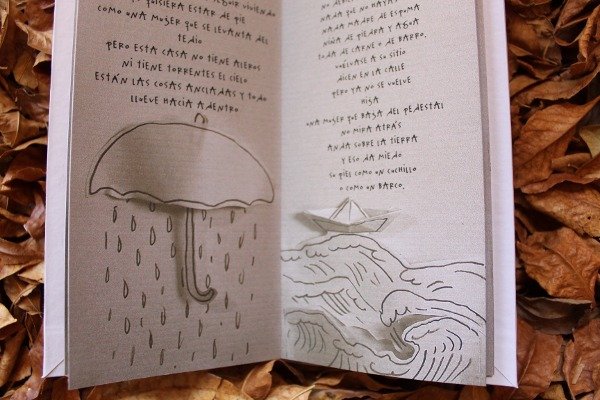 SEGUIR VIVIENDO
QUISIERA ESTAR DE PIE
COMO UNA MUJER QUE SE LEVANTA DEL
TEDIO
PERO ESTA CASA NO TIENE ALEROS
NI TIENE TORRENTES EL CIELO
ESTÁN LAS COSAS ANCLADAS Y TODO
LLUEVE HACIA ADENTRO
NADA QUE NO HAYAS
NADA MADRE DE ESPUMA
NIÑA DE PIEDRA Y AGUA
TODA DE CARNE O DE BARRO.
VUÉLVASE A SU SITIO
DICEN EN LA CALLE
PERO YA NO SE VUELVE
HIJA
UNA MUJER QUE BAJA DEL PEDESTAL
NO MIRA ATRÁS
ANDA SOBRE LA TIERRA
Y ESO DA MIEDO
SU PIES COMO UN CUCHILLO
O COMO UN BARCO.